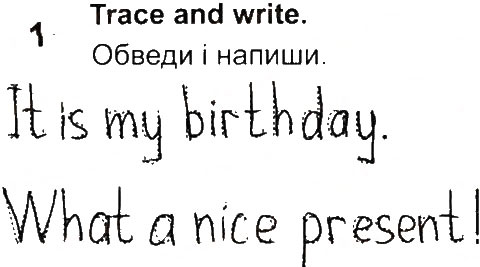 1 Trace and write.
Обведи і напиши.
It is my birthday.
What a nice present!